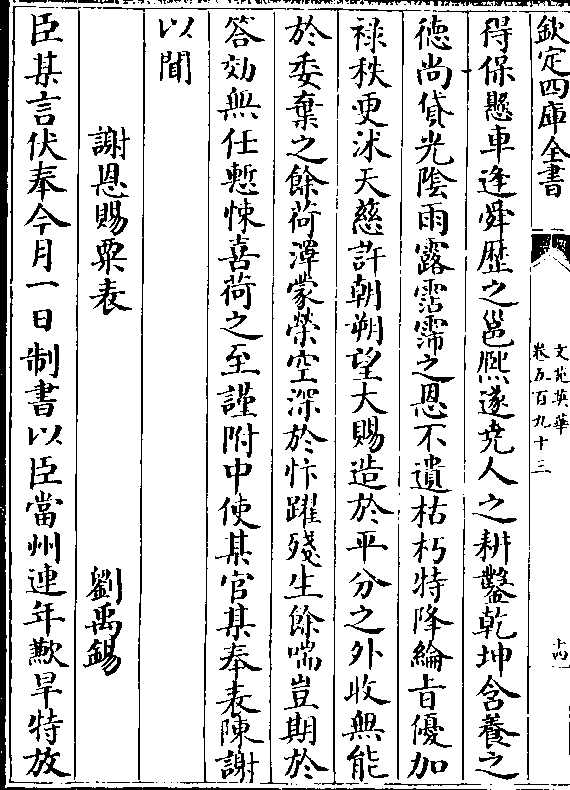 欽定四庫全書
文苑英華
卷五百九十三
十四
得保懸車逢舜歴之邕熙遂堯人之耕鑿乾坤含養之
徳尚貸光陰雨露霑霈之恩不遺枯朽特降綸旨優加
禄秩更沐天慈許朝朔望大賜造於平分之外收無能
於委棄之餘荷澤蒙榮空深於忭躍殘生餘喘豈期於
答効無任慙悚喜荷之至謹附中使某官某奉表陳謝
以聞
謝恩賜粟表
劉禹錫
臣某言伏奉今月一日制書以臣當州連年歉旱特放